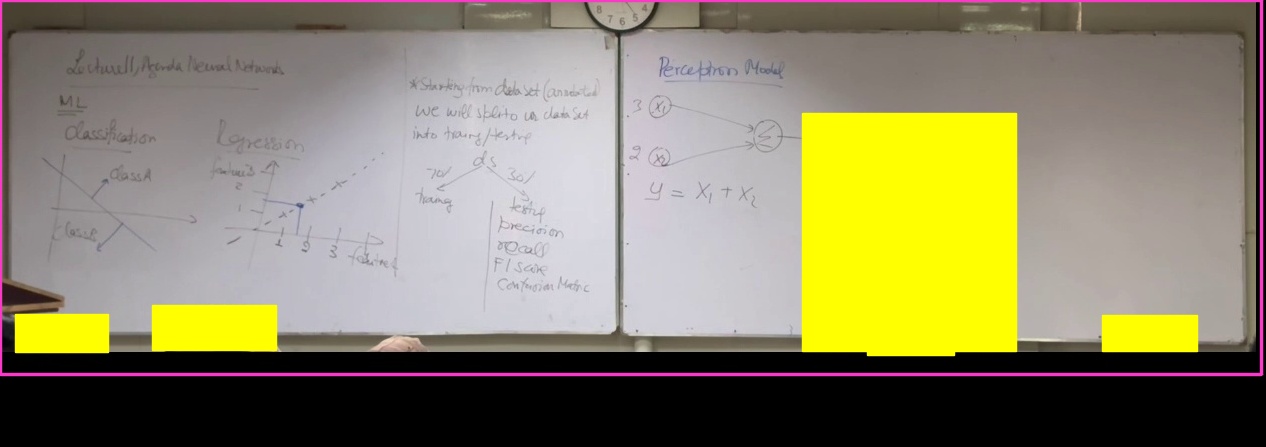 Lecture11, Agenda Neural Networks
ML
Classification
Class A
Class B
Regression
feature 2
2
1
1 2 3 feature 1
*Starting from data set (annotated)
we will split us data set
into traing/testing
ds
70/ 30/
traing
testing
precision
recall
F1 score
Confusion Matric
8 7 6 5 4
Perceptron Model
3 X1
Σ
2 X2
y = X1 + X2